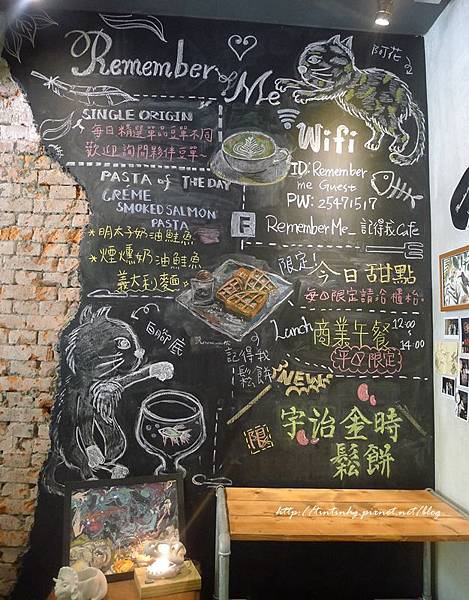 Remember Me
阿花
SINGLE ORIGIN
每日精選單品豆單不同
歡迎詢問夥伴豆單~
Wifi
ID: Remember
me Guest
PW: 25471517
PASTA of THE DAY
CRÉME
SMOKED SALMON
PASTA
*明太子奶油鮭魚
*煙燻奶油鮭魚
義大利麵
F
Remember Me_記得我Cafe
限定!
今日甜點
每日限定請洽櫃枱。
Lunch 商業午餐 12:00
~
14:00
平日限定
白腳底
記得我
鬆餅
NEW
宇治金時
鬆餅
http://tintinhg.pixnet.net/blog